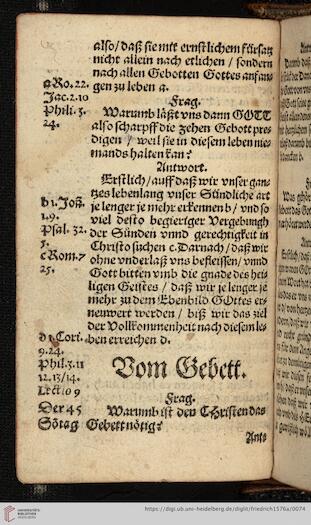 also/ daß sie mit ernstlichem fürsatz
nicht allein nach etlichen / sondern
nach allen Gebotten Gottes anfan-
gen zu leben a.
a Ro. 22.
Jac. 2.10
Phili. 3.
24.
Frag.
Warumb läßt vns dann GOTT
also scharpff die zehen Gebott pre-
digen / weil sie in diesem leben nie-
mands halten kan?
Antwort.
Erstlich / auff daß wir vnser gan-
tzes lebenlang vnser Sündliche art
je lenger je mehr erkennen b / vnd so
viel desto begieriger Vergebungh
der Sünden vnnd gerechtigkeit in
Christo suchen c. Darnach / daß wir
ohne vnderlaß vns befleissen / vnnd
Gott bitten vmb die gnade des hei-
ligen Geistes / daß wir je lenger je
mehr zu dem Ebenbild GOttes er-
neuwert werden / biß wir das ziel
der Vollkommenheit nach diesem le-
ben erreichen d.
b 1. Joh.
1.9.
Psal. 32.
5.
c Rom. 7
25.
d 1. Cori.
9.24.
Phil. 3.11
12.13/14.
Vom Gebett.
Der 45
Sötag
Frag.
Warumb ist den CHristen das
Gebett nötig?
Ant-
https://digi.ub.uni-heidelberg.de/diglit/friedrich1576a/0074
UNIVERSITÄTS-
BIBLIOTHEK
HEIDELBERG